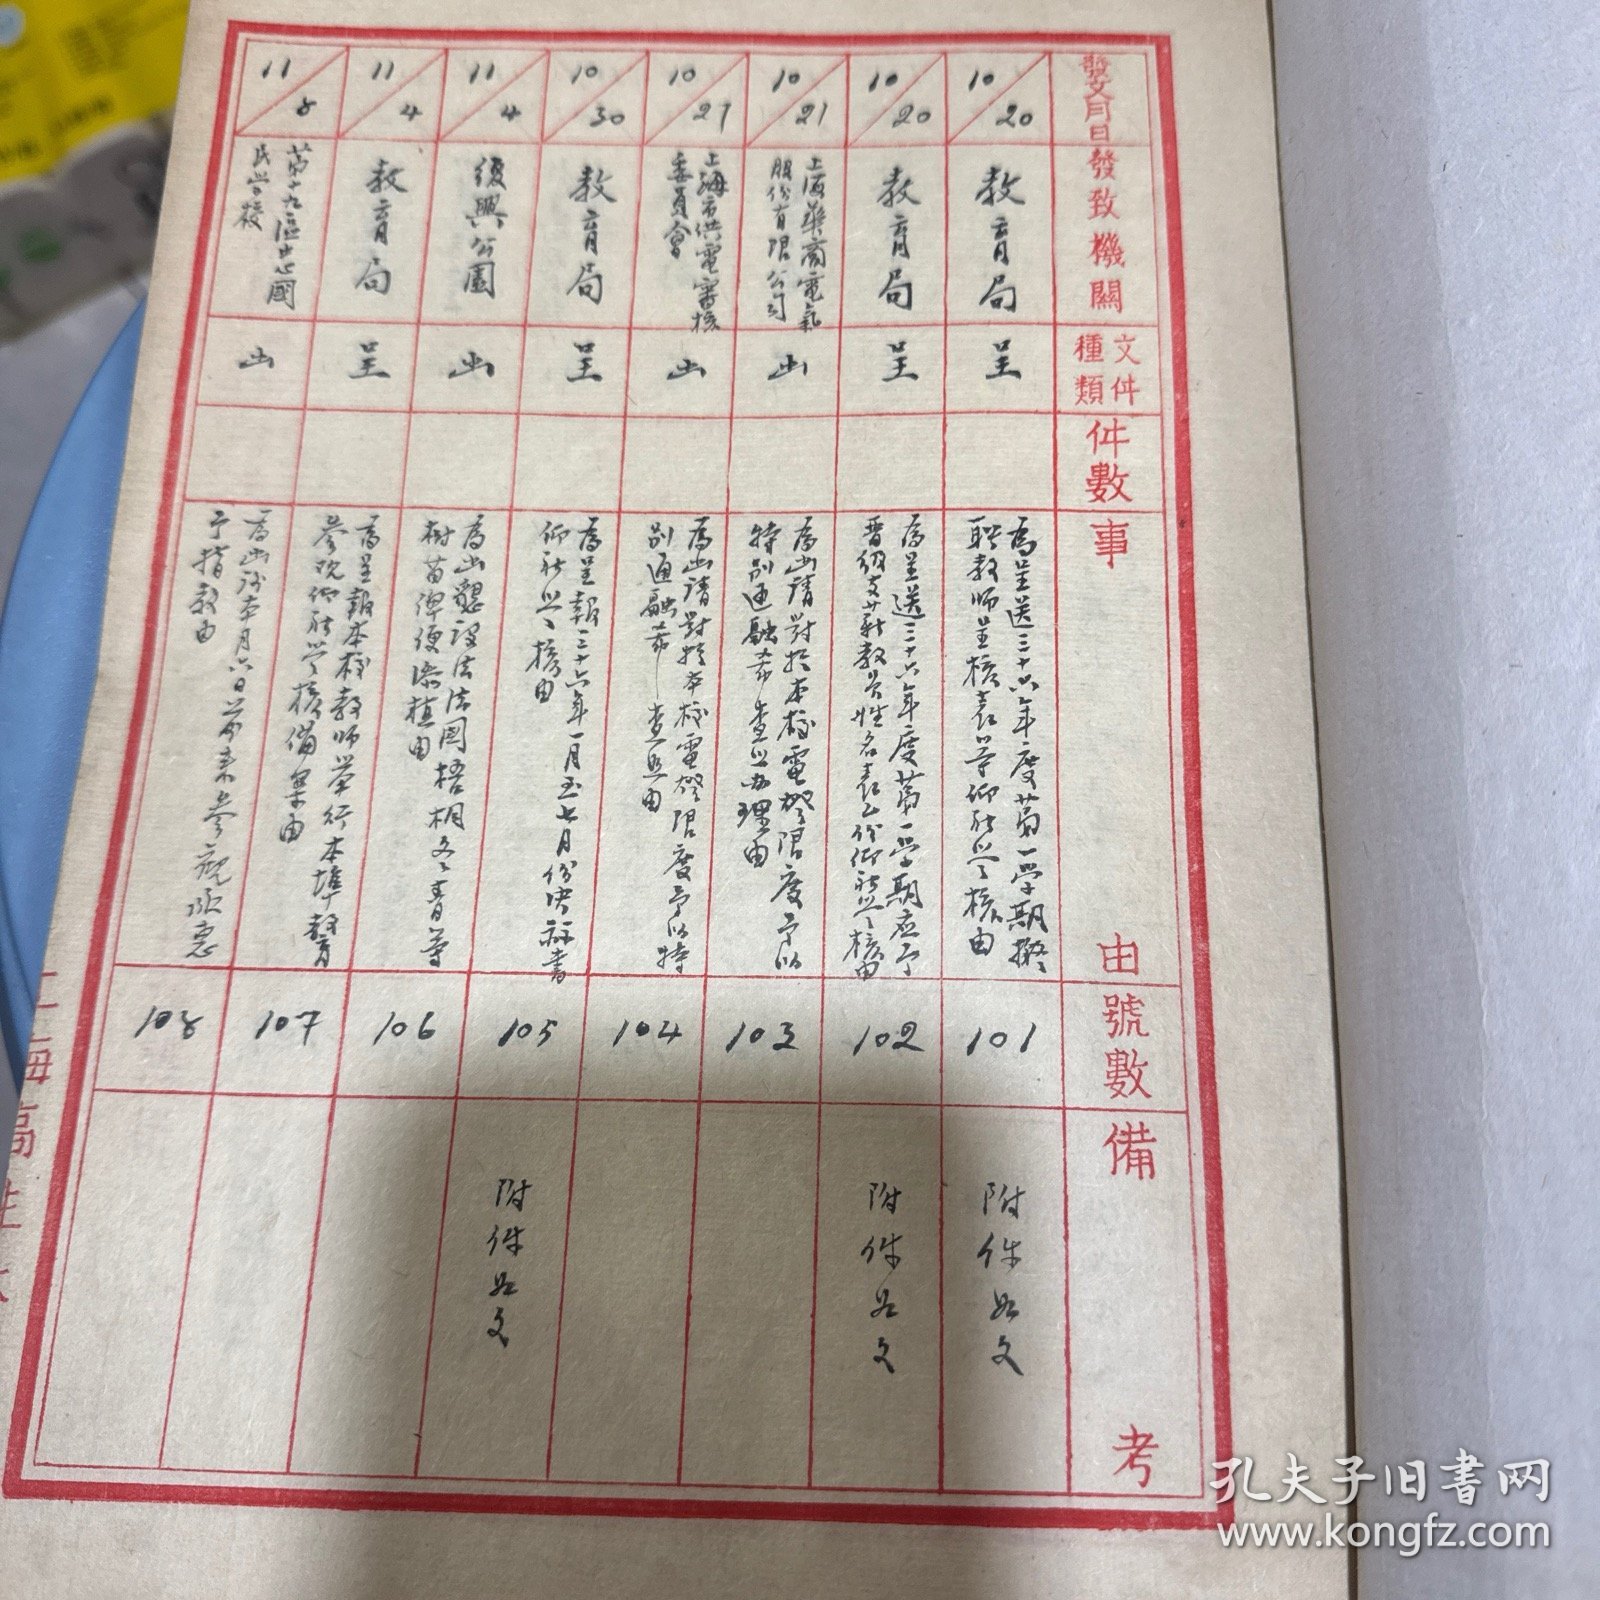 發文月日
發致機關
文件種類
件數
事由
號數
備考
10/20
教育局
呈
為呈送三十六年度第一學期擬
聘教師呈核表等仰祈鑒核由
101
附件如文
10/20
教育局
呈
為呈送三十六年度第一學期應予
晉級支薪教員姓名表乙份仰祈鑒核由
102
附件如文
10/21
上海華商電氣
股份有限公司
函
為函請對於本校電燈限度予以
特別通融希查照辦理由
103
10/27
上海市供電審核
委員會
函
為函請對於本校電燈限度予以特
別通融希查照由
104
10/30
教育局
呈
為呈報三十六年一月至七月份決算書
仰祈鑒核由
105
附件如文
11/4
復興公園
函
為函懇設法法國梧桐冬青等
樹苗俾便添植由
106
11/4
教育局
呈
為呈報本校教師舉行本埠教育
參觀仰祈鑒核備案由
107
11/8
第十九區中心國
民學校
函
為函請本月六日前來參觀
予指教由
108
上海高
孔夫子旧书网
www.kongfz.com